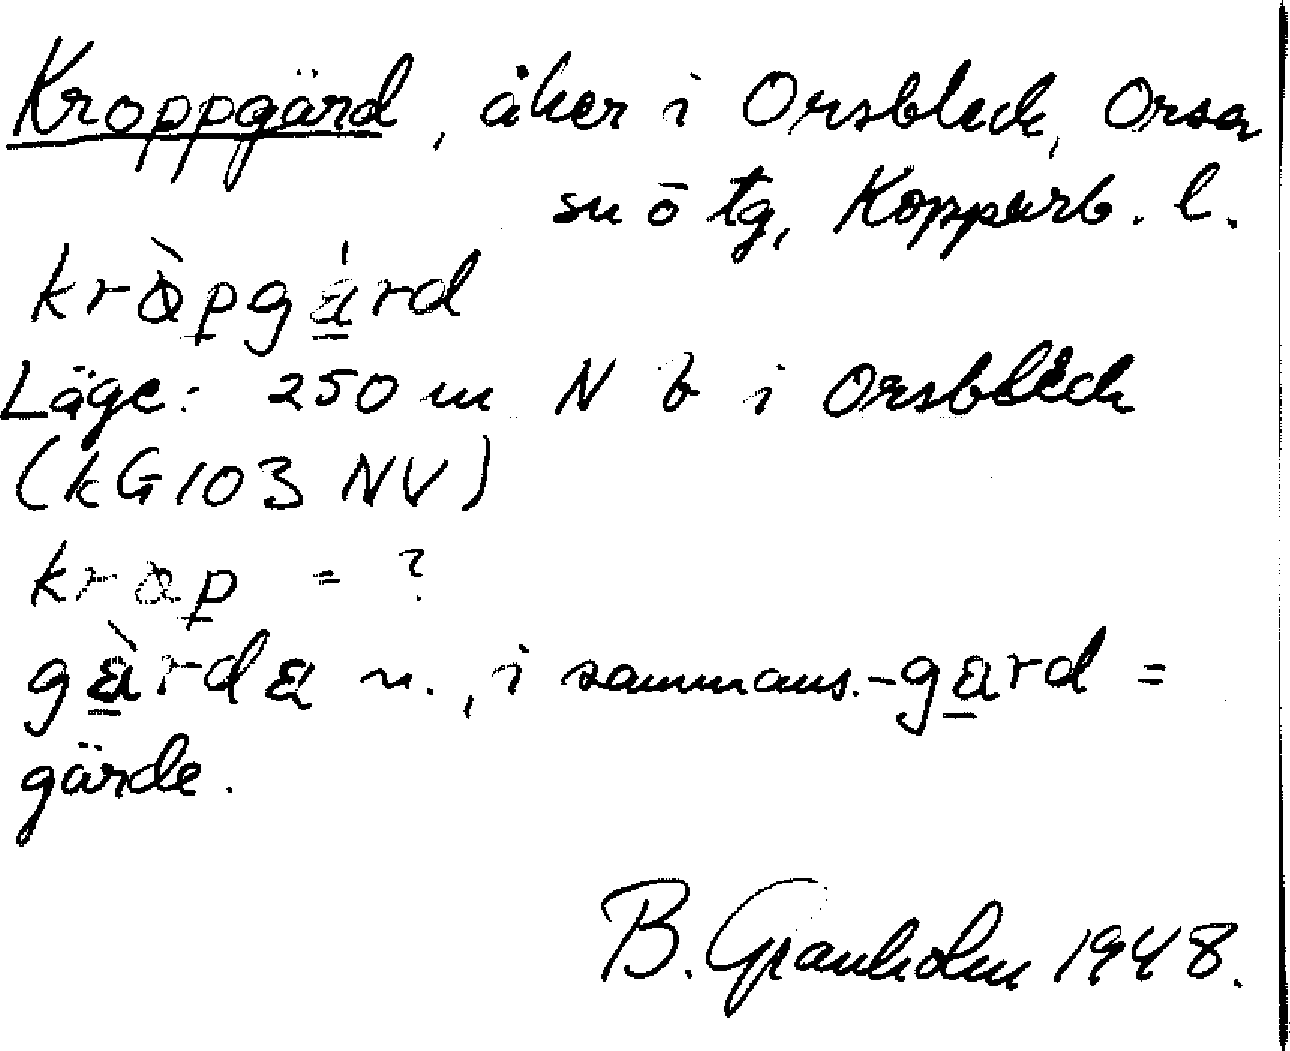 Kroppgärd, åker i Orsbleck, Orsa
sn ö tg, Kopparb. l.
kròpgárd
Läge: 250 m N b i Orsbleck
(kG103 NV)
krop = ?
gàrda n., i sammans. -gard =
gärde.
B. Granholm 1948.